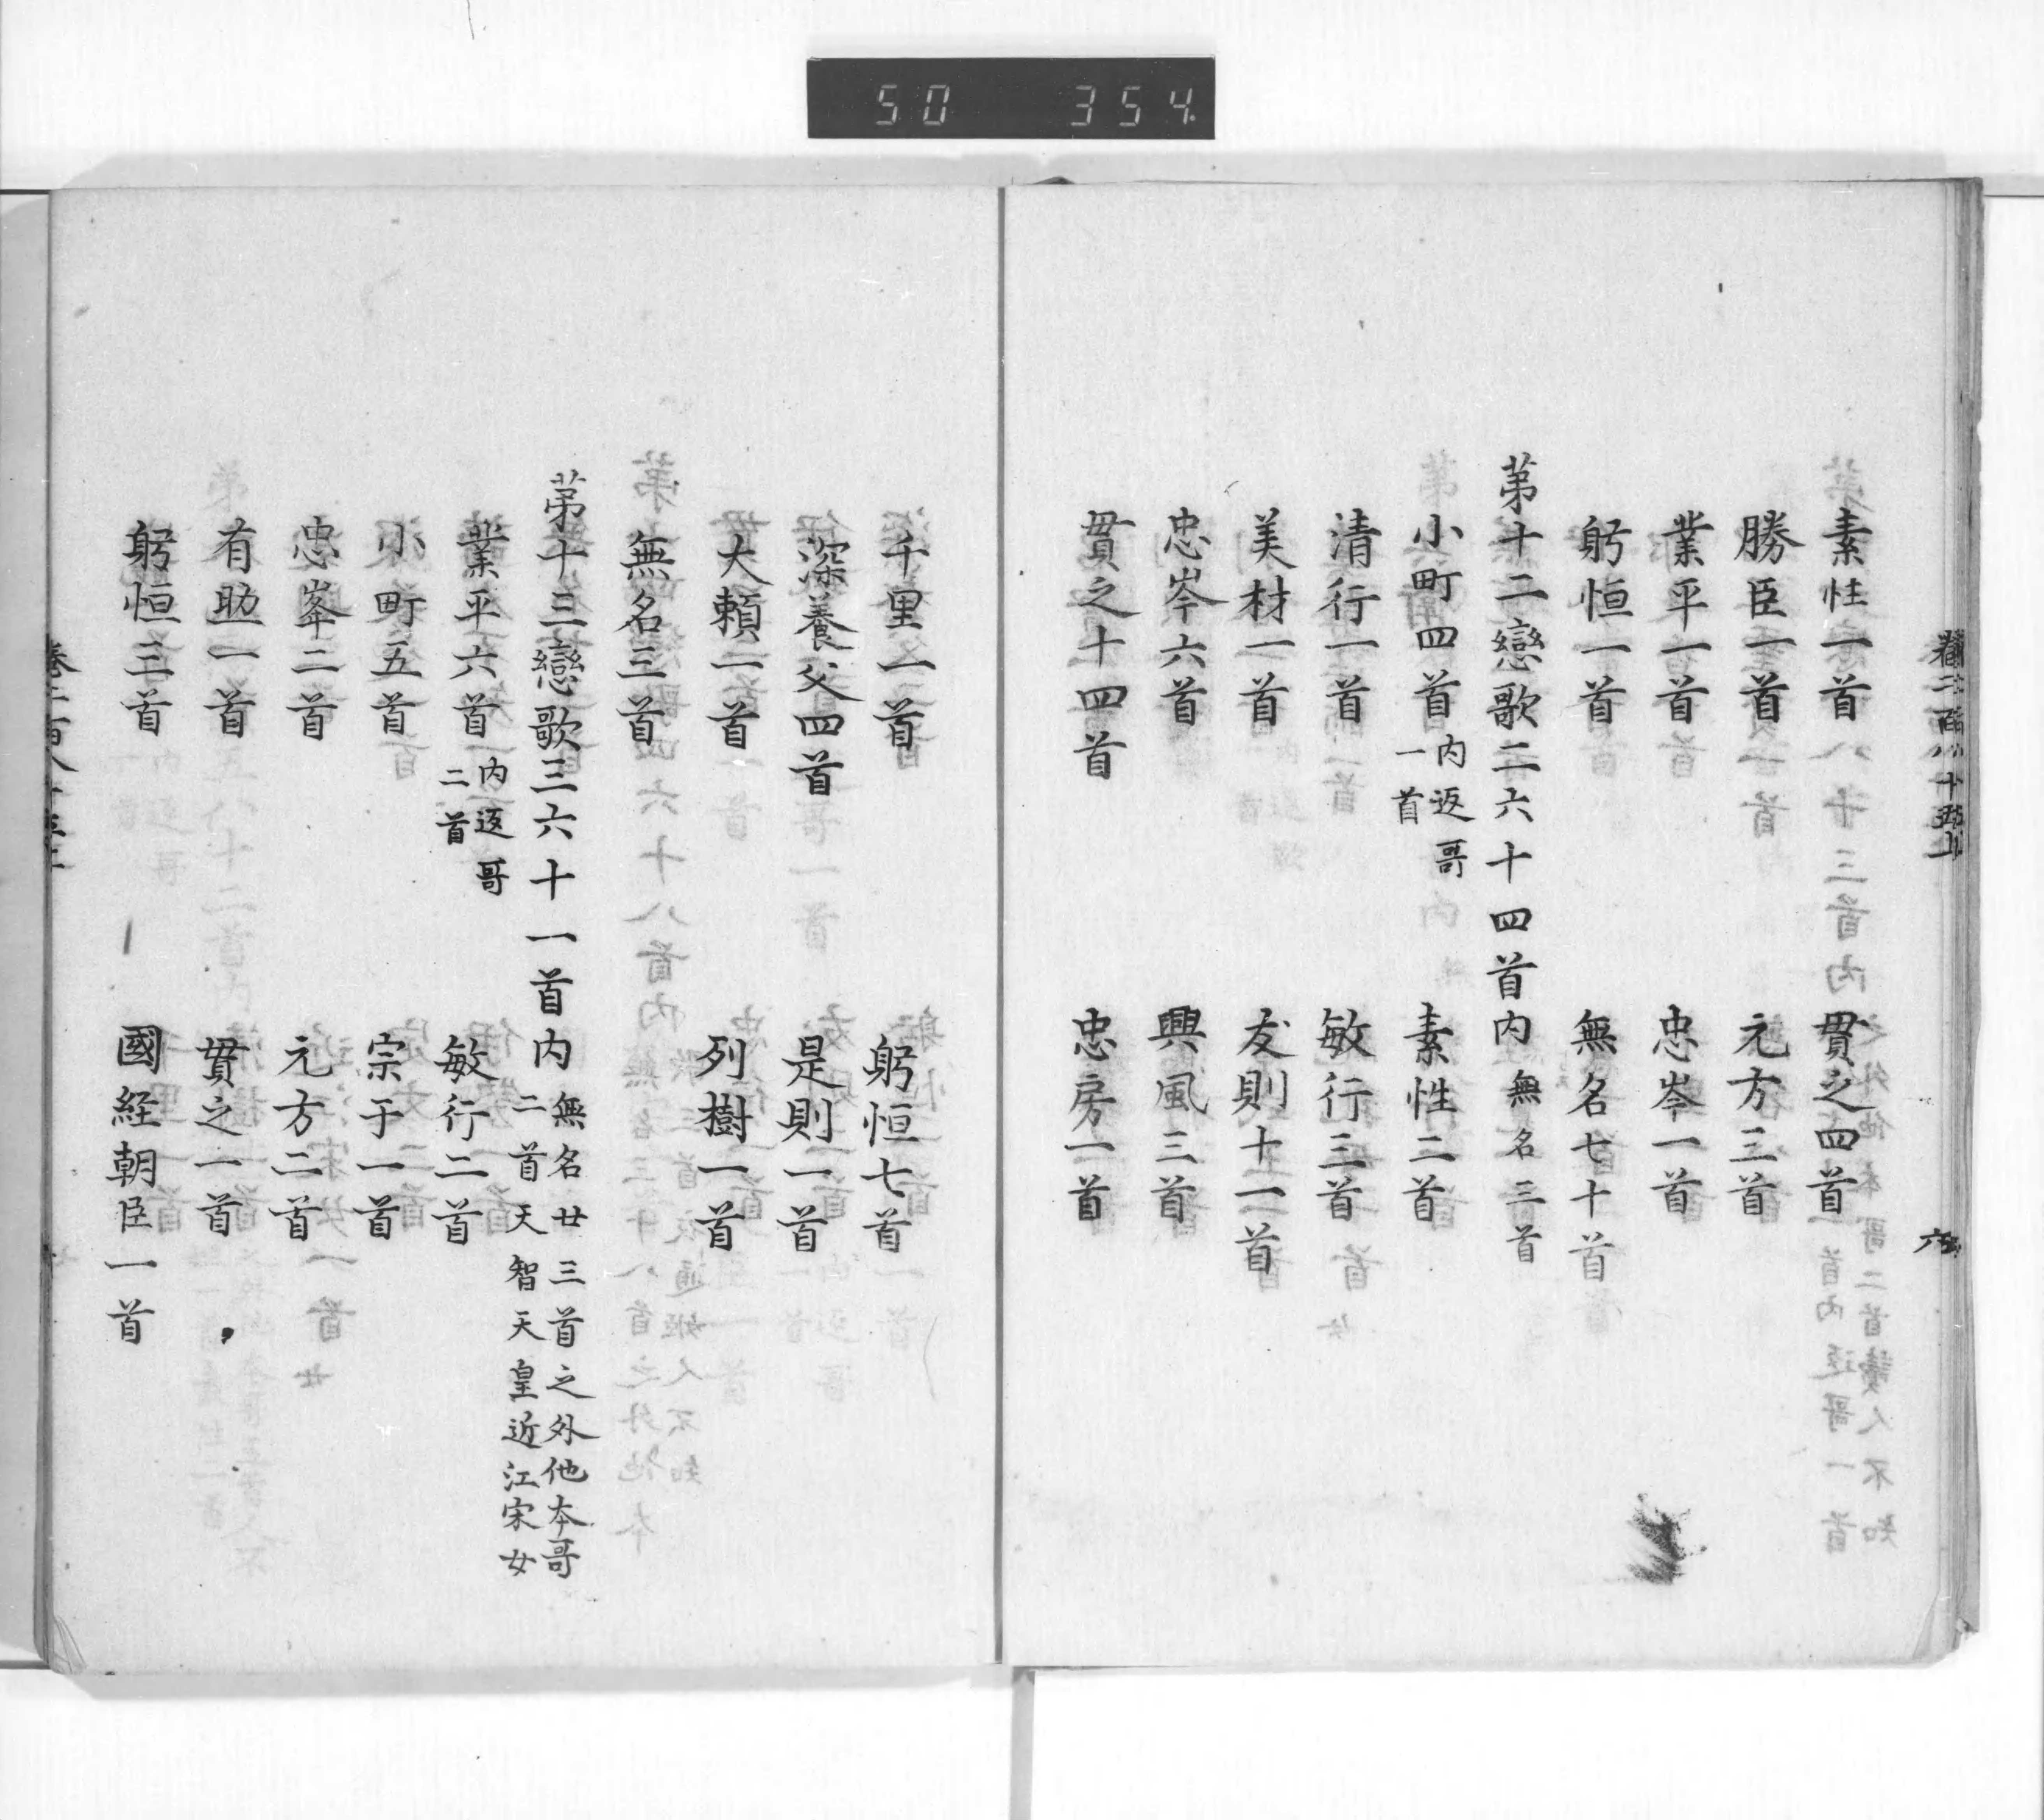 50 354
素性一首 貫之四首
勝臣一首 元方三首
業平一首 忠岑一首
躬恒一首 無名七十首
第十二戀歌二六十四首内無名三首
小町四首内返哥一首 素性二首
清行一首 敏行三首
美材一首 友則十一首
忠岑六首 興風三首
貫之十四首 忠房一首
千里一首 躬恒七首
深養父四首 是則一首
大頼一首 列樹一首
無名三首
第十三戀歌三六十一首内無名廿三首之外他本哥二首天智天皇近江宋女
業平六首内返哥二首 敏行二首
小町五首 宗于一首
忠峯二首 元方二首
有助一首 貫之一首
躬恒三首 國経朝臣一首